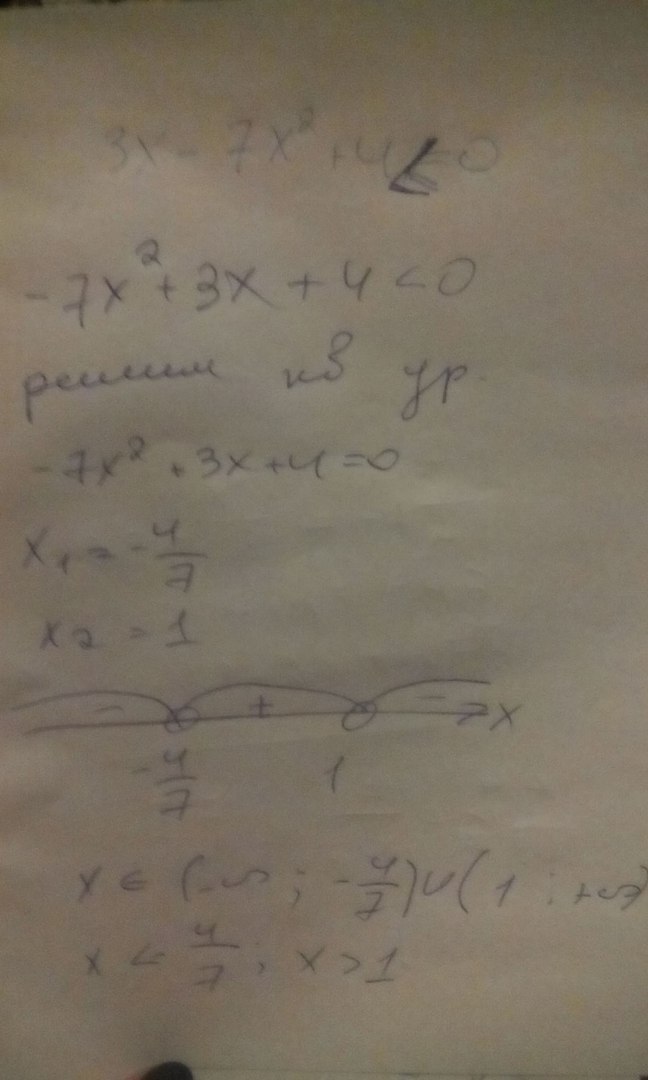 3x - 7x² + 4 < 0
-7x² + 3x + 4 < 0
решим кв ур.
-7x² + 3x + 4 = 0
x₁ = -4/7
x₂ = 1
- + - x
-4/7 1
x ∈ (-∞ ; -4/7) ∪ (1 ; +∞)
x < 4/7 ; x > 1